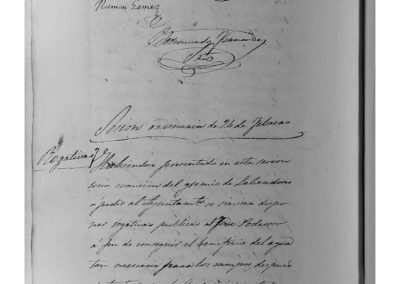 Ramon Gomez
Fernandez
Srio
Sesion ordinaria de 24 de Febrero
Rogativas
Habiendose presentado en esta sesion
una comision del gremio de Labradores
a pedir al Ayuntamto se sirvan dispo-
ner rogativas publicas al Todopoderoso
a fin de conseguir el beneficio del agua
tan necesaria para los campos despues